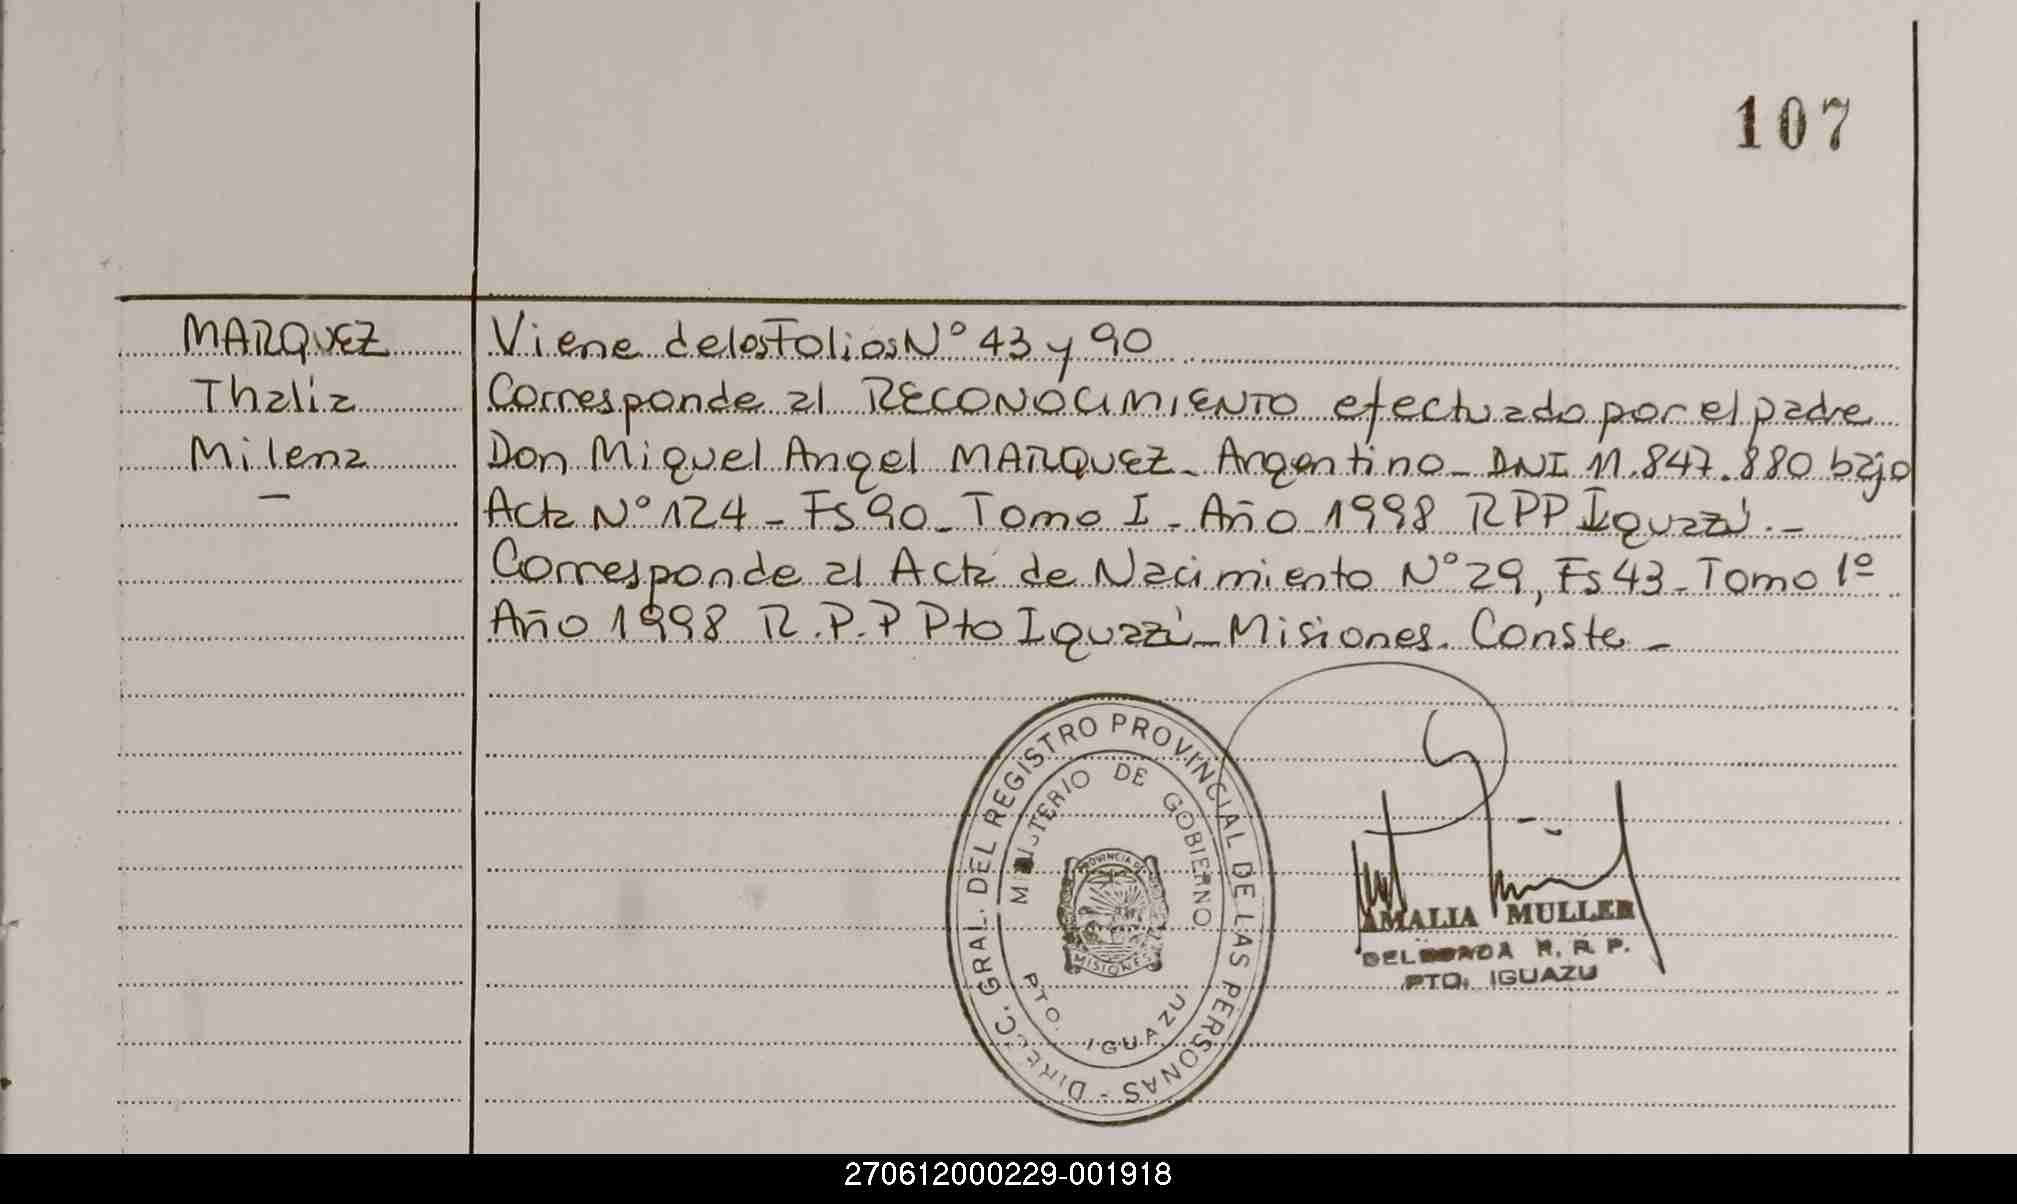 107
MARQUEZ
Thalia
Milena
—
Viene de los Folios Nº 43 y 90
Corresponde al RECONOCIMIENTO efectuado por el padre
Don Miguel Angel MARQUEZ - Argentino - DNI 11.847.880 bajo
Acta Nº 124 - Fs 90 - Tomo I - Año 1998 RPP Iguazú. -
Corresponde al Acta de Nacimiento Nº 29, Fs 43 - Tomo 1º
Año 1998 R.P.P Pto Iguazú - Misiones. Conste -
DIRECC. GRAL. DEL REGISTRO PROVINCIAL DE LAS PERSONAS -
MINISTERIO DE GOBIERNO
PROVINCIA DE
MISIONES
PTO. IGUAZU
AMALIA MULLER
R. P.
PTO. IGUAZU
270612000229-001918